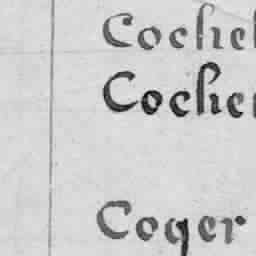 Cochel
Cocher
Coqer